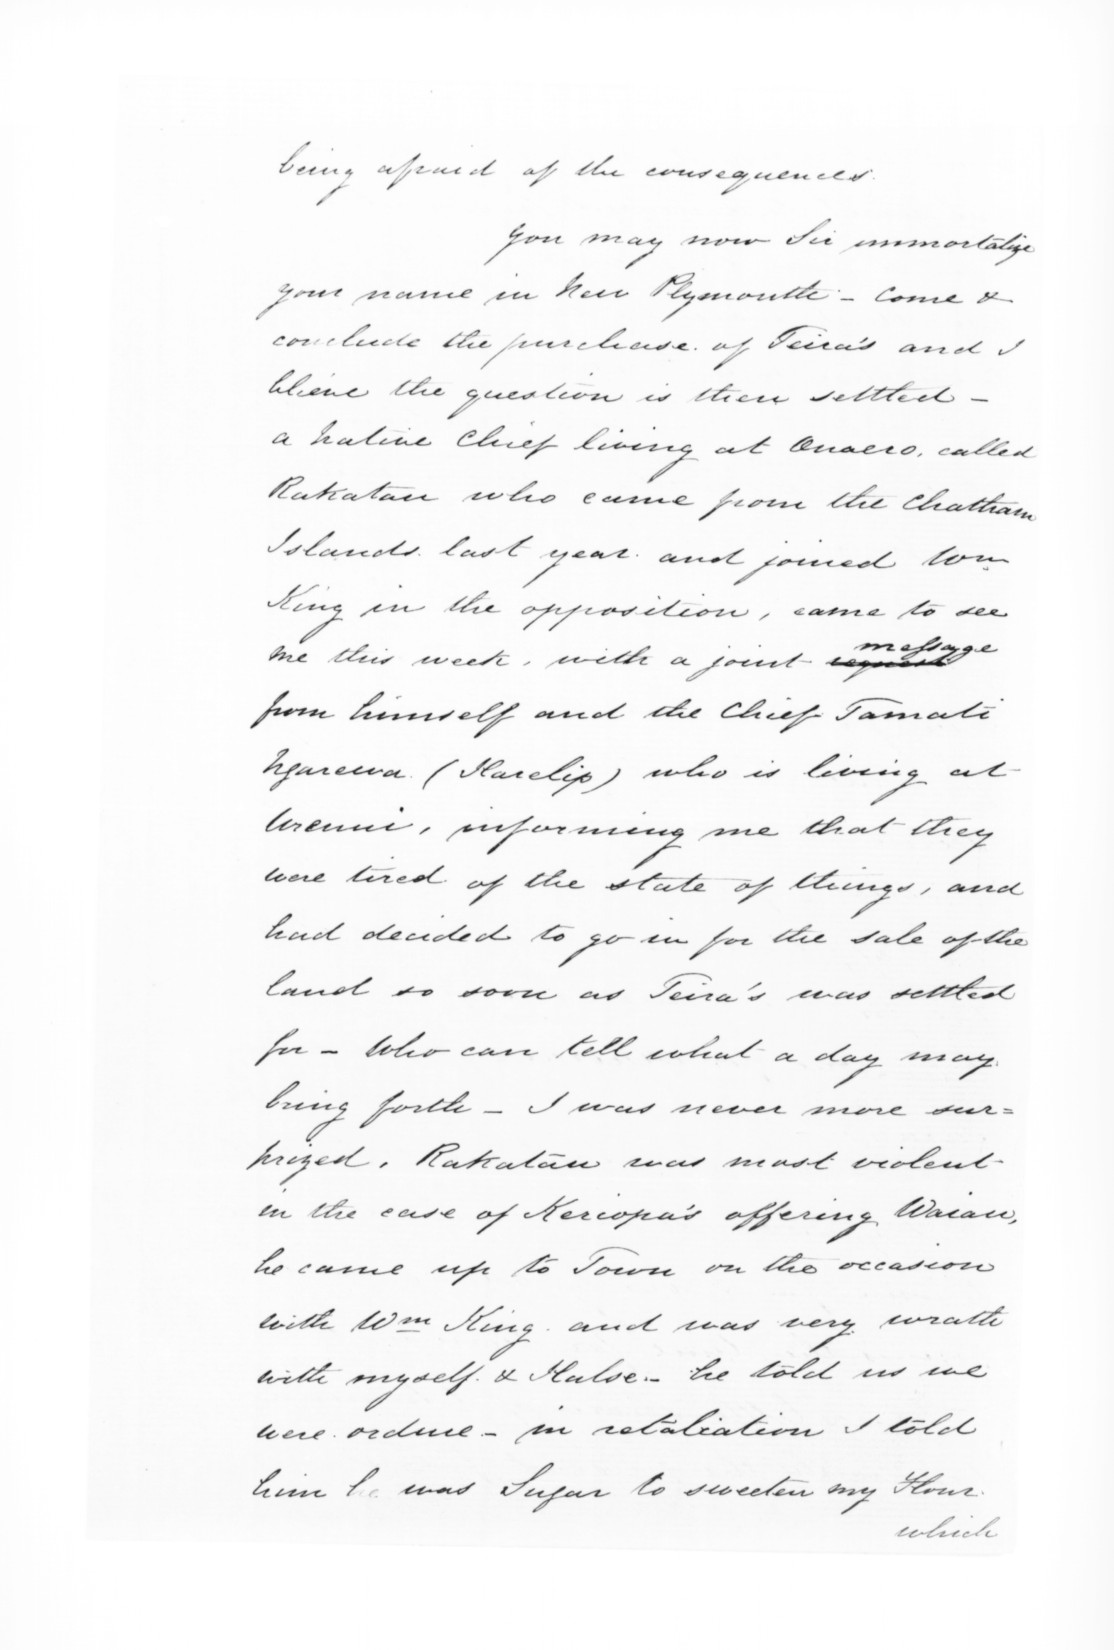 being afraid of the consequences.
You may now Sir immortalize
your name in New Plymouth – Come &
conclude the purchase of Teira's and I
blieve the question is then settled –
a Native Chief living at Onaero, called
Rakatau who came from the Chatham
Islands last year and joined Wm
King in the opposition, came to see
me this week, with a joint request message
from himself and the Chief Tamati
Ngarewa (Harelip) who is living at
Urenui, informing me that they
were tired of the state of things, and
had decided to go in for the sale of the
land so soon as Teira's was settled
for – Who can tell what a day may
bring forth – I was never more sur=
prized. Rakatau was most violent
in the case of Keriopa's offering Waiau,
he came up to Town on the occasion
with Wm King and was very wrath
with myself & Halse – he told us we
were ordure – in retaliation I told
him he was Sugar to sweeten my Flour
which